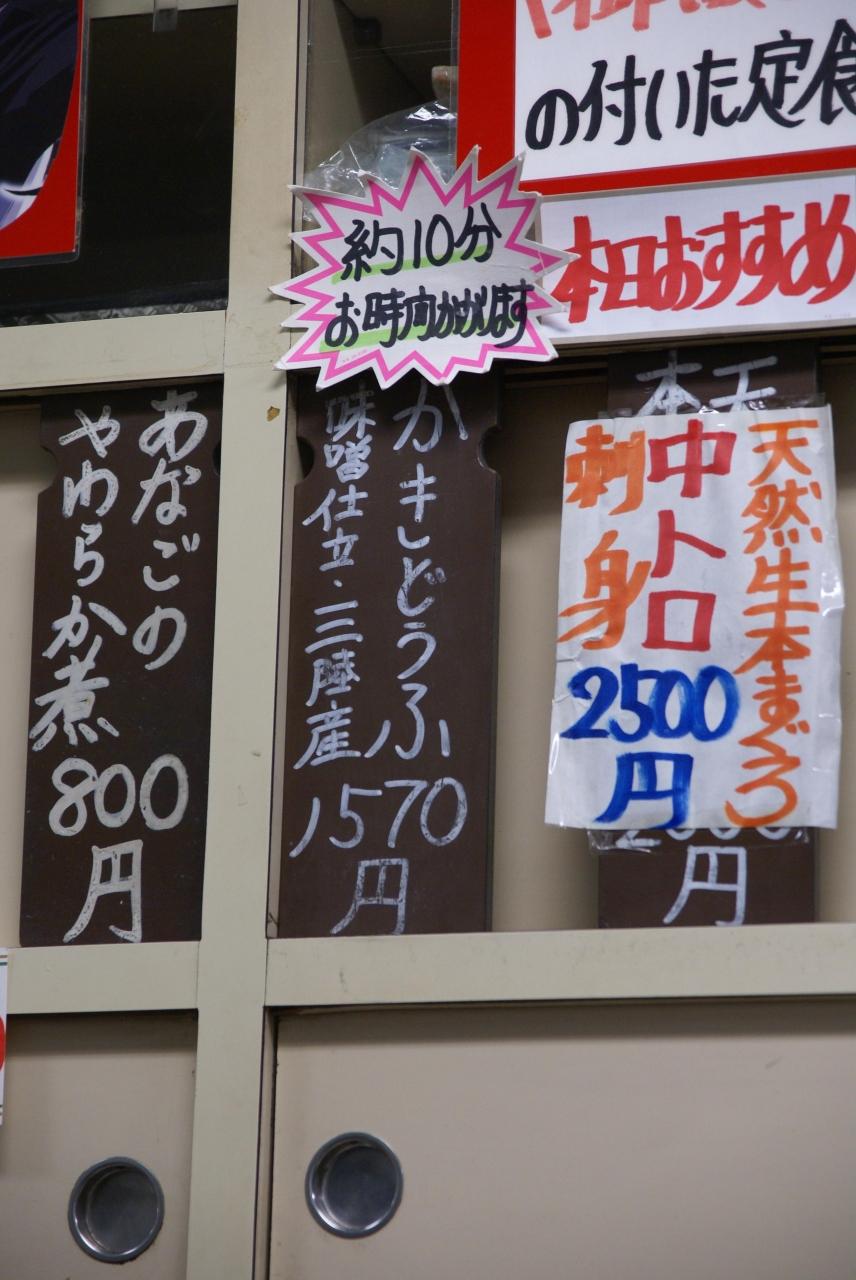 の付いた定食
本日おすすめ
約10分
お時間かかります
あなごの
やわらか煮
800
円
カキどうふ
味噌仕立・三陸産
1570
円
天然生本まぐろ
中トロ
刺身
2500
円
円